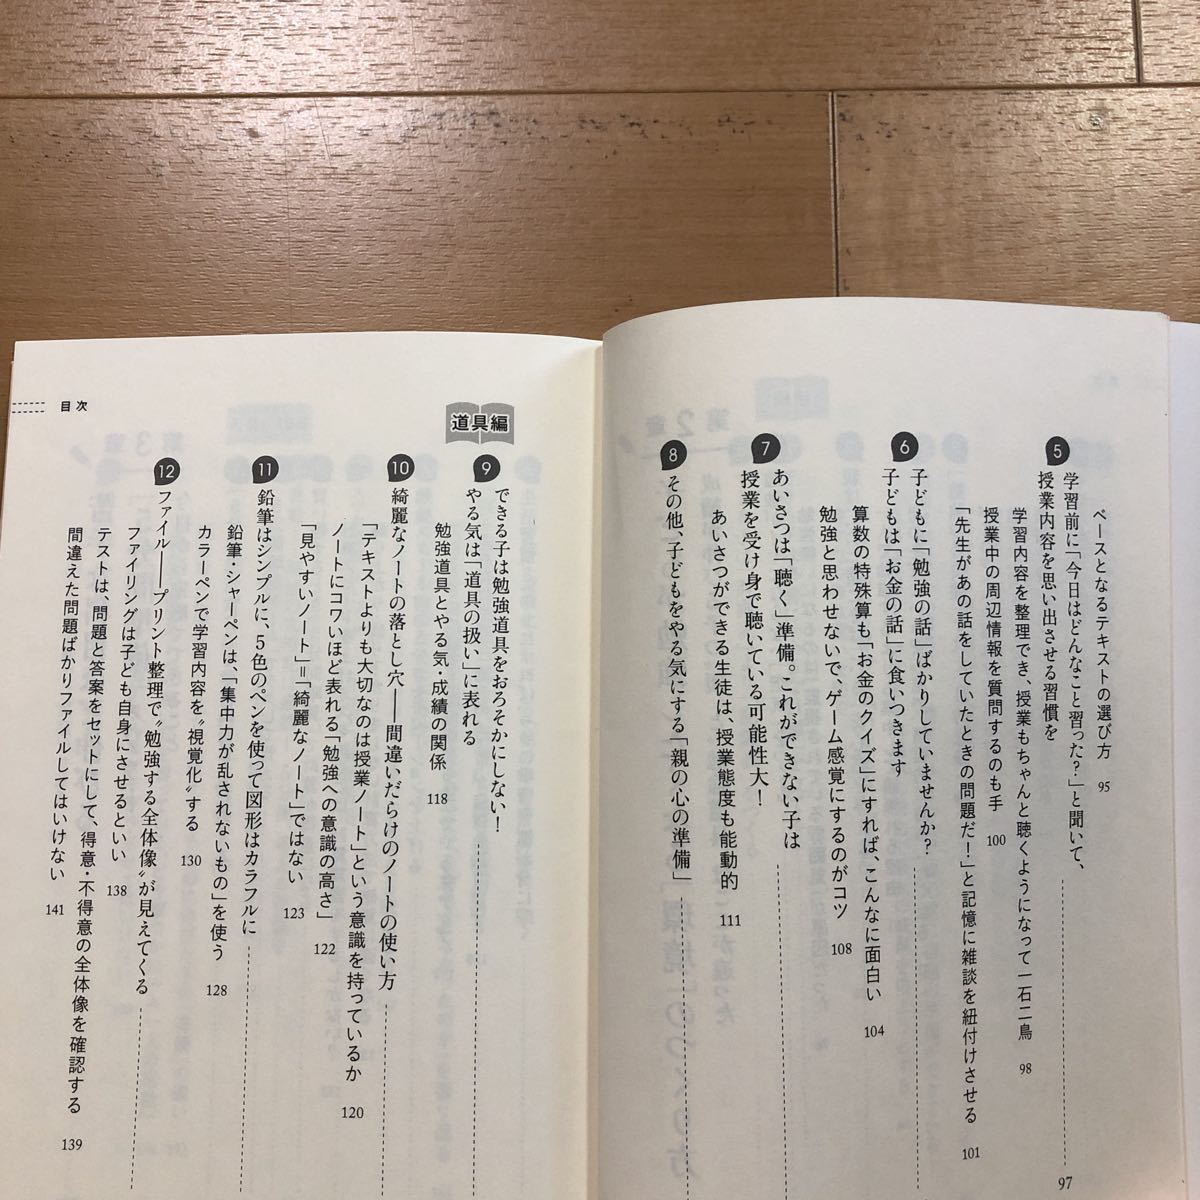 ベースとなるテキストの選び方 95
5 学習前に「今日はどんなこと習った?」と聞いて、
授業内容を思い出させる習慣を 97
学習内容を整理でき、授業もちゃんと聴くようになって一石二鳥 98
授業中の周辺情報を質問するのも手 100
「先生があの話をしていたときの問題だ!」と記憶に雑談を紐付けさせる 101
6 子どもに「勉強の話」ばかりしていませんか?
子どもは「お金の話」に食いつきます
算数の特殊算も「お金のクイズ」にすれば、こんなに面白い 104
勉強と思わせないで、ゲーム感覚にするのがコツ 108
7 あいさつは「聴く」準備。これができない子は
授業を受け身で聴いている可能性大!
あいさつができる生徒は、授業態度も能動的 111
8 その他、子どもをやる気にする「親の心の準備」
目次
道具編
9 できる子は勉強道具をおろそかにしない!
やる気は「道具の扱い」に表れる
勉強道具とやる気・成績の関係 118
10 綺麗なノートの落とし穴――間違いだらけのノートの使い方
「テキストよりも大切なのは授業ノート」という意識を持っているか 120
ノートにコワいほど表れる「勉強への意識の高さ」 122
「見やすいノート」=「綺麗なノート」ではない 123
11 鉛筆はシンプルに、5色のペンを使って図形はカラフルに
鉛筆・シャーペンは、「集中力が乱されないもの」を使う 128
カラーペンで学習内容を〝視覚化〟する 130
12 ファイル――プリント整理で〝勉強する全体像〟が見えてくる
ファイリングは子ども自身にさせるといい 138
テストは、問題と答案をセットにして、得意・不得意の全体像を確認する 139
間違えた問題ばかりファイルしてはいけない 141